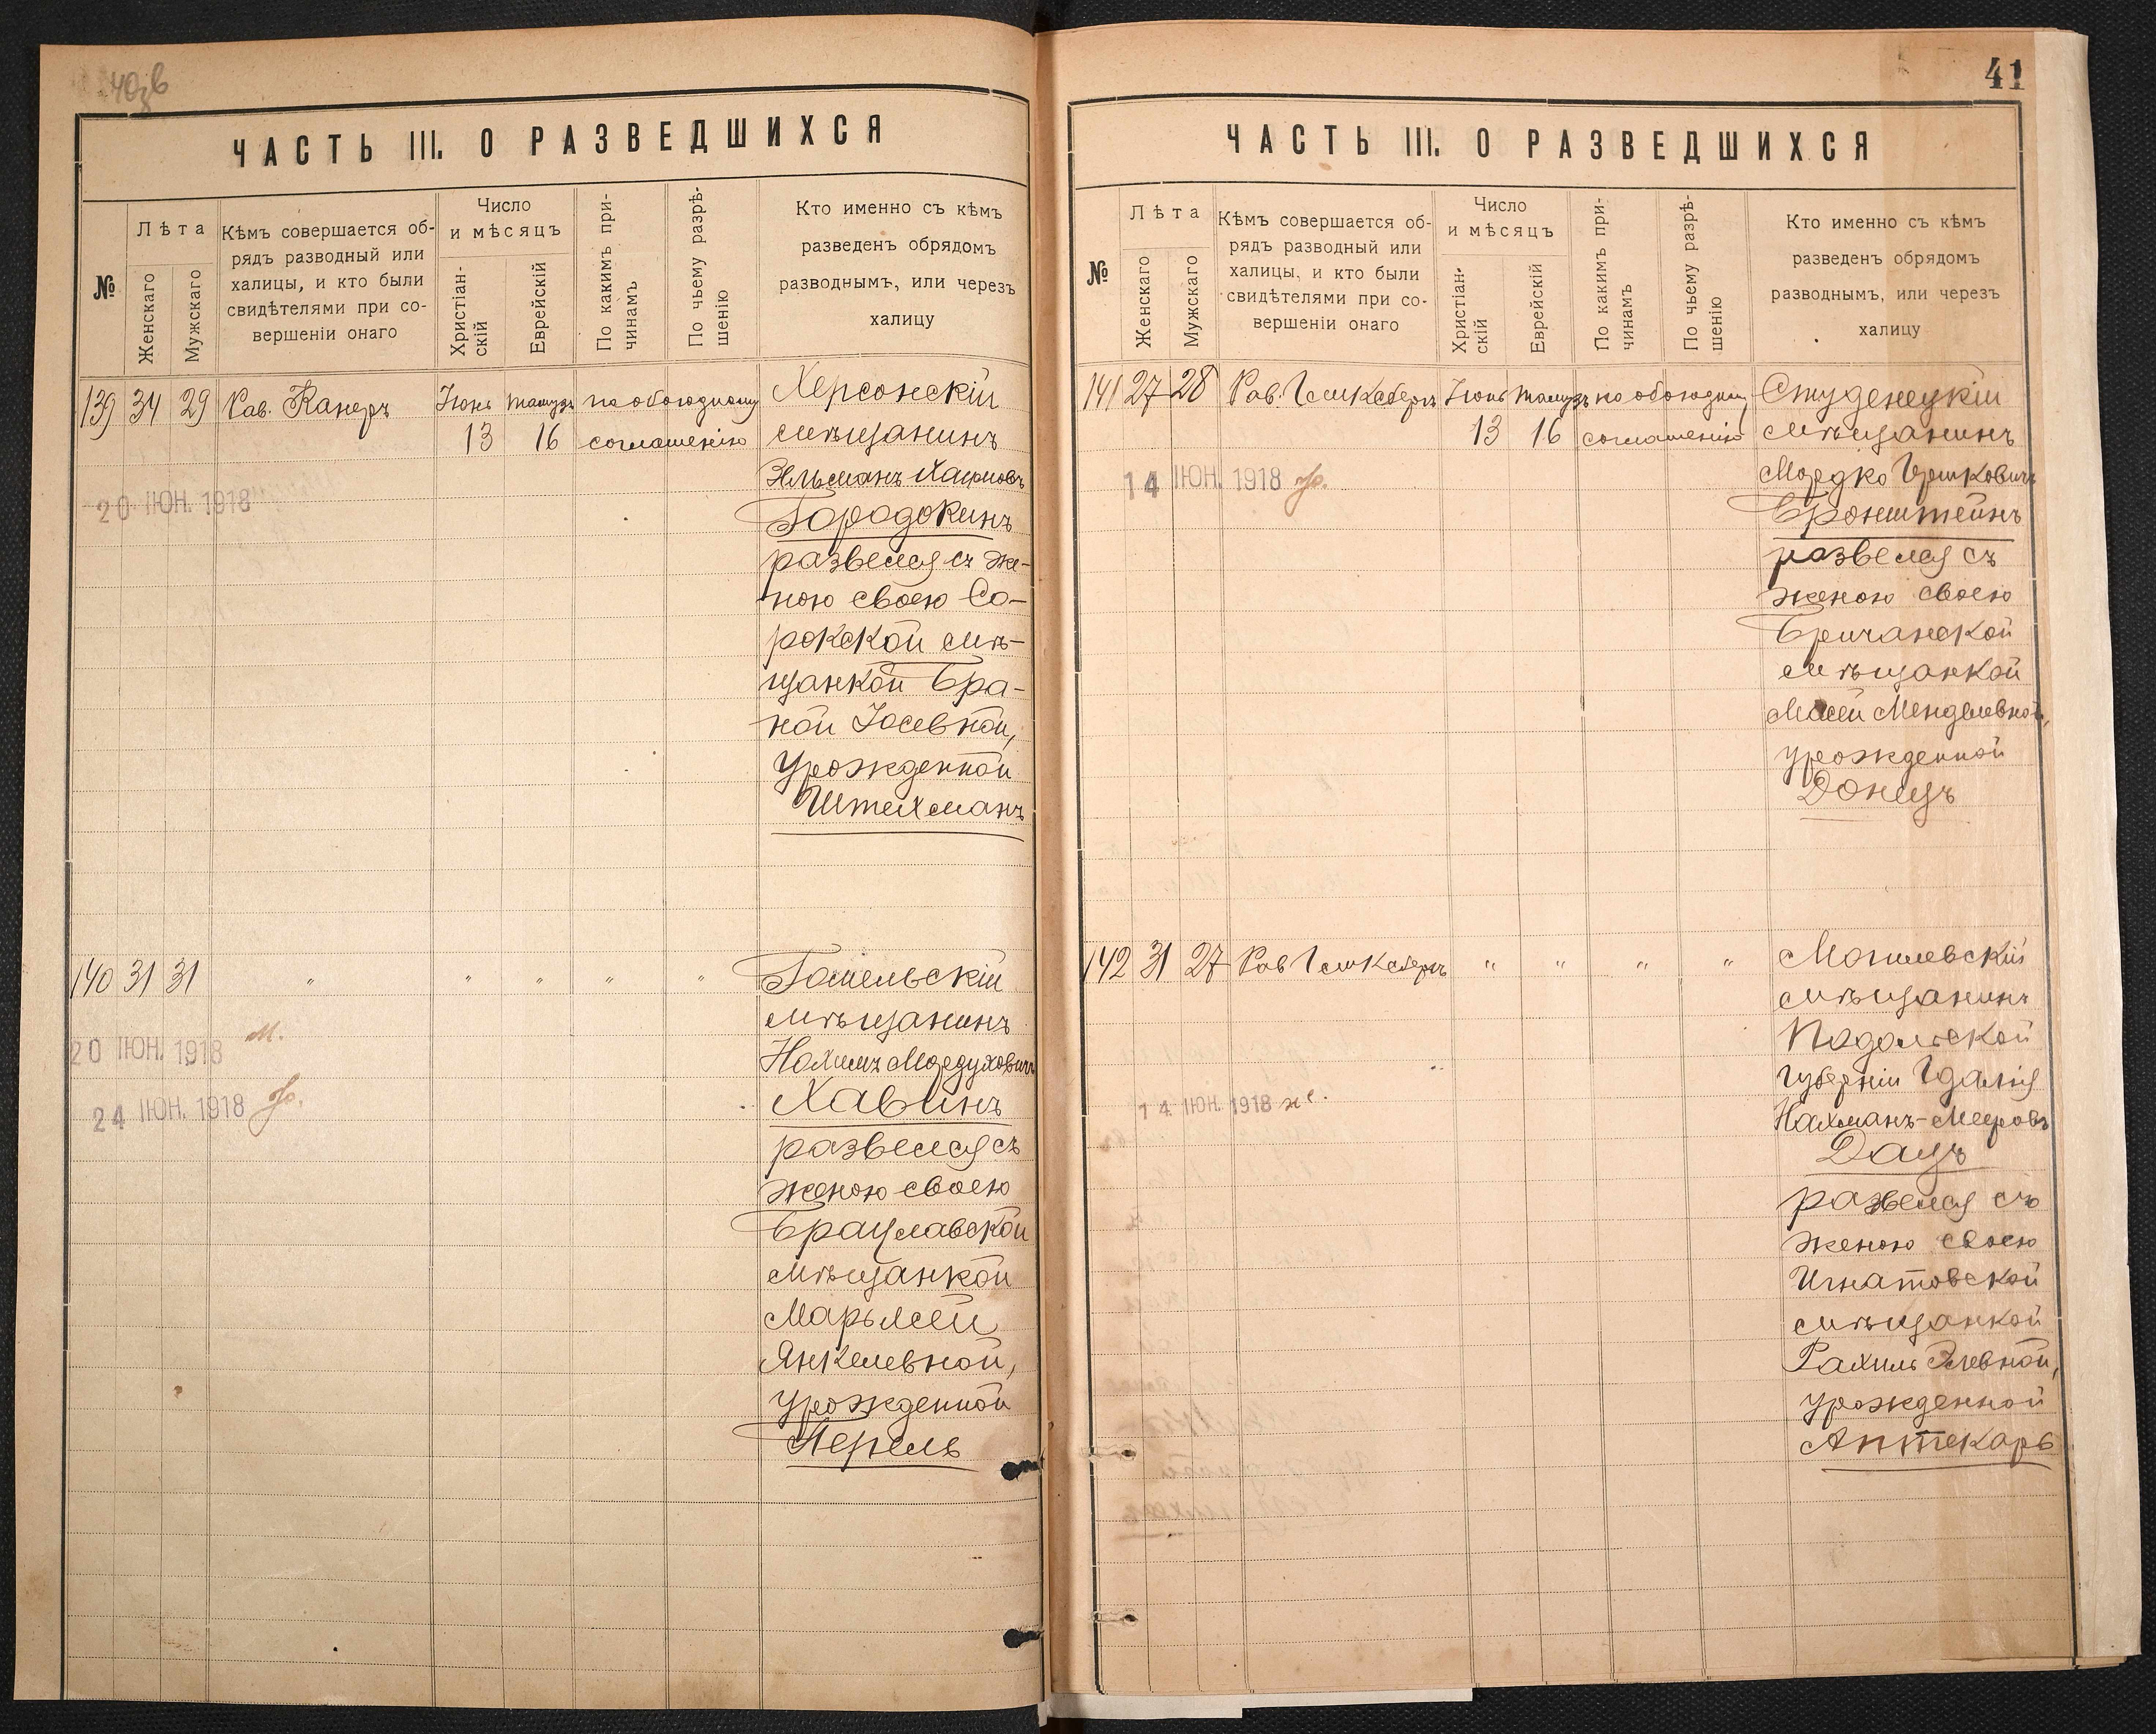 40зв
ЧАСТЬ III. О РАЗВЕДШИХСЯ
№
Лѣта
Женскаго
Мужскаго
Кѣмъ совершается об-
рядъ разводный или
халицы, и кто были
свидѣтелями при со-
вершеніи онаго
Число
и мѣсяцъ
Христіан-
скій
Еврейскій
По какимъ при-
чинамъ
По чьему разрѣ-
шенію
Кто именно съ кѣмъ
разведенъ обрядомъ
разводнымъ, или черезъ
халицу
139 34 29 Рав. Канеръ Іюнь Тамузъ по обоюдному Херсонскій
13 16 соглашенію мѣщанинъ
Эльманъ Хаимовъ
20 ІЮН. 1918
Городокинъ
развелся съ же-
ною своею Со-
рокской мѣ-
щанкой Бра-
ной Іосевной,
урожденной
Штейхманъ
140 31 31 " " " " " Гомельскій
мѣщанинъ
20 ІЮН. 1918 М.
Нахимъ Мордуховичъ
24 ІЮН. 1918
Хавинъ
развелся съ
женою своею
Брацлавской
мѣщанкой
Марьясей
Янкелевной,
урожденной
Перель
41
ЧАСТЬ III. О РАЗВЕДШИХСЯ
№
Лѣта
Женскаго
Мужскаго
Кѣмъ совершается об-
рядъ разводный или
халицы, и кто были
свидѣтелями при со-
вершеніи онаго
Число
и мѣсяцъ
Христіан-
скій
Еврейскій
По какимъ при-
чинамъ
По чьему разрѣ-
шенію
Кто именно съ кѣмъ
разведенъ обрядомъ
разводнымъ, или черезъ
халицу
141 27 28 Рав. Іюнь Тамузъ по обоюдному Студенецкій
13 16 соглашенію мѣщанинъ
14 ІЮН. 1918
Мордко Гершковичъ
Бронштейнъ
развелся съ
женою своею
Бричанской
мѣщанкой
Менделевной,
урожденной
Донецъ
142 31 27 Рав " " " " Могилевскій
мѣщанинъ
Подольской
губерніи Гдалія
14 ІЮН. 1918
Нахманъ-Мееровъ
Дацъ
развелся съ
женою своею
Игнатовской
мѣщанкой
Рахиль Элевной,
урожденной
Аптекарь